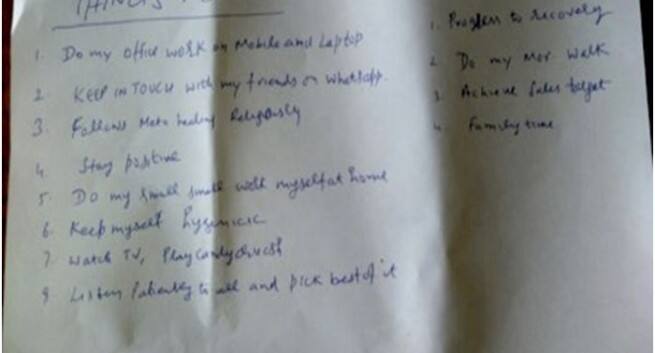 THINGS
1. Do my office work on Mobile and Laptop
2. KEEP IN TOUCH with my friends on whatsapp.
3. Follows Meta healing Religously
4. Stay positive
5. Do my small small work myself at home
6. Keep myself hygenicic
7. Watch TV, Play candy crush
8. Listen Patiently to all and pick best of it
1. Progress to recovery
2. Do my Mor walk
3. Achieve Sales target
4. Family time